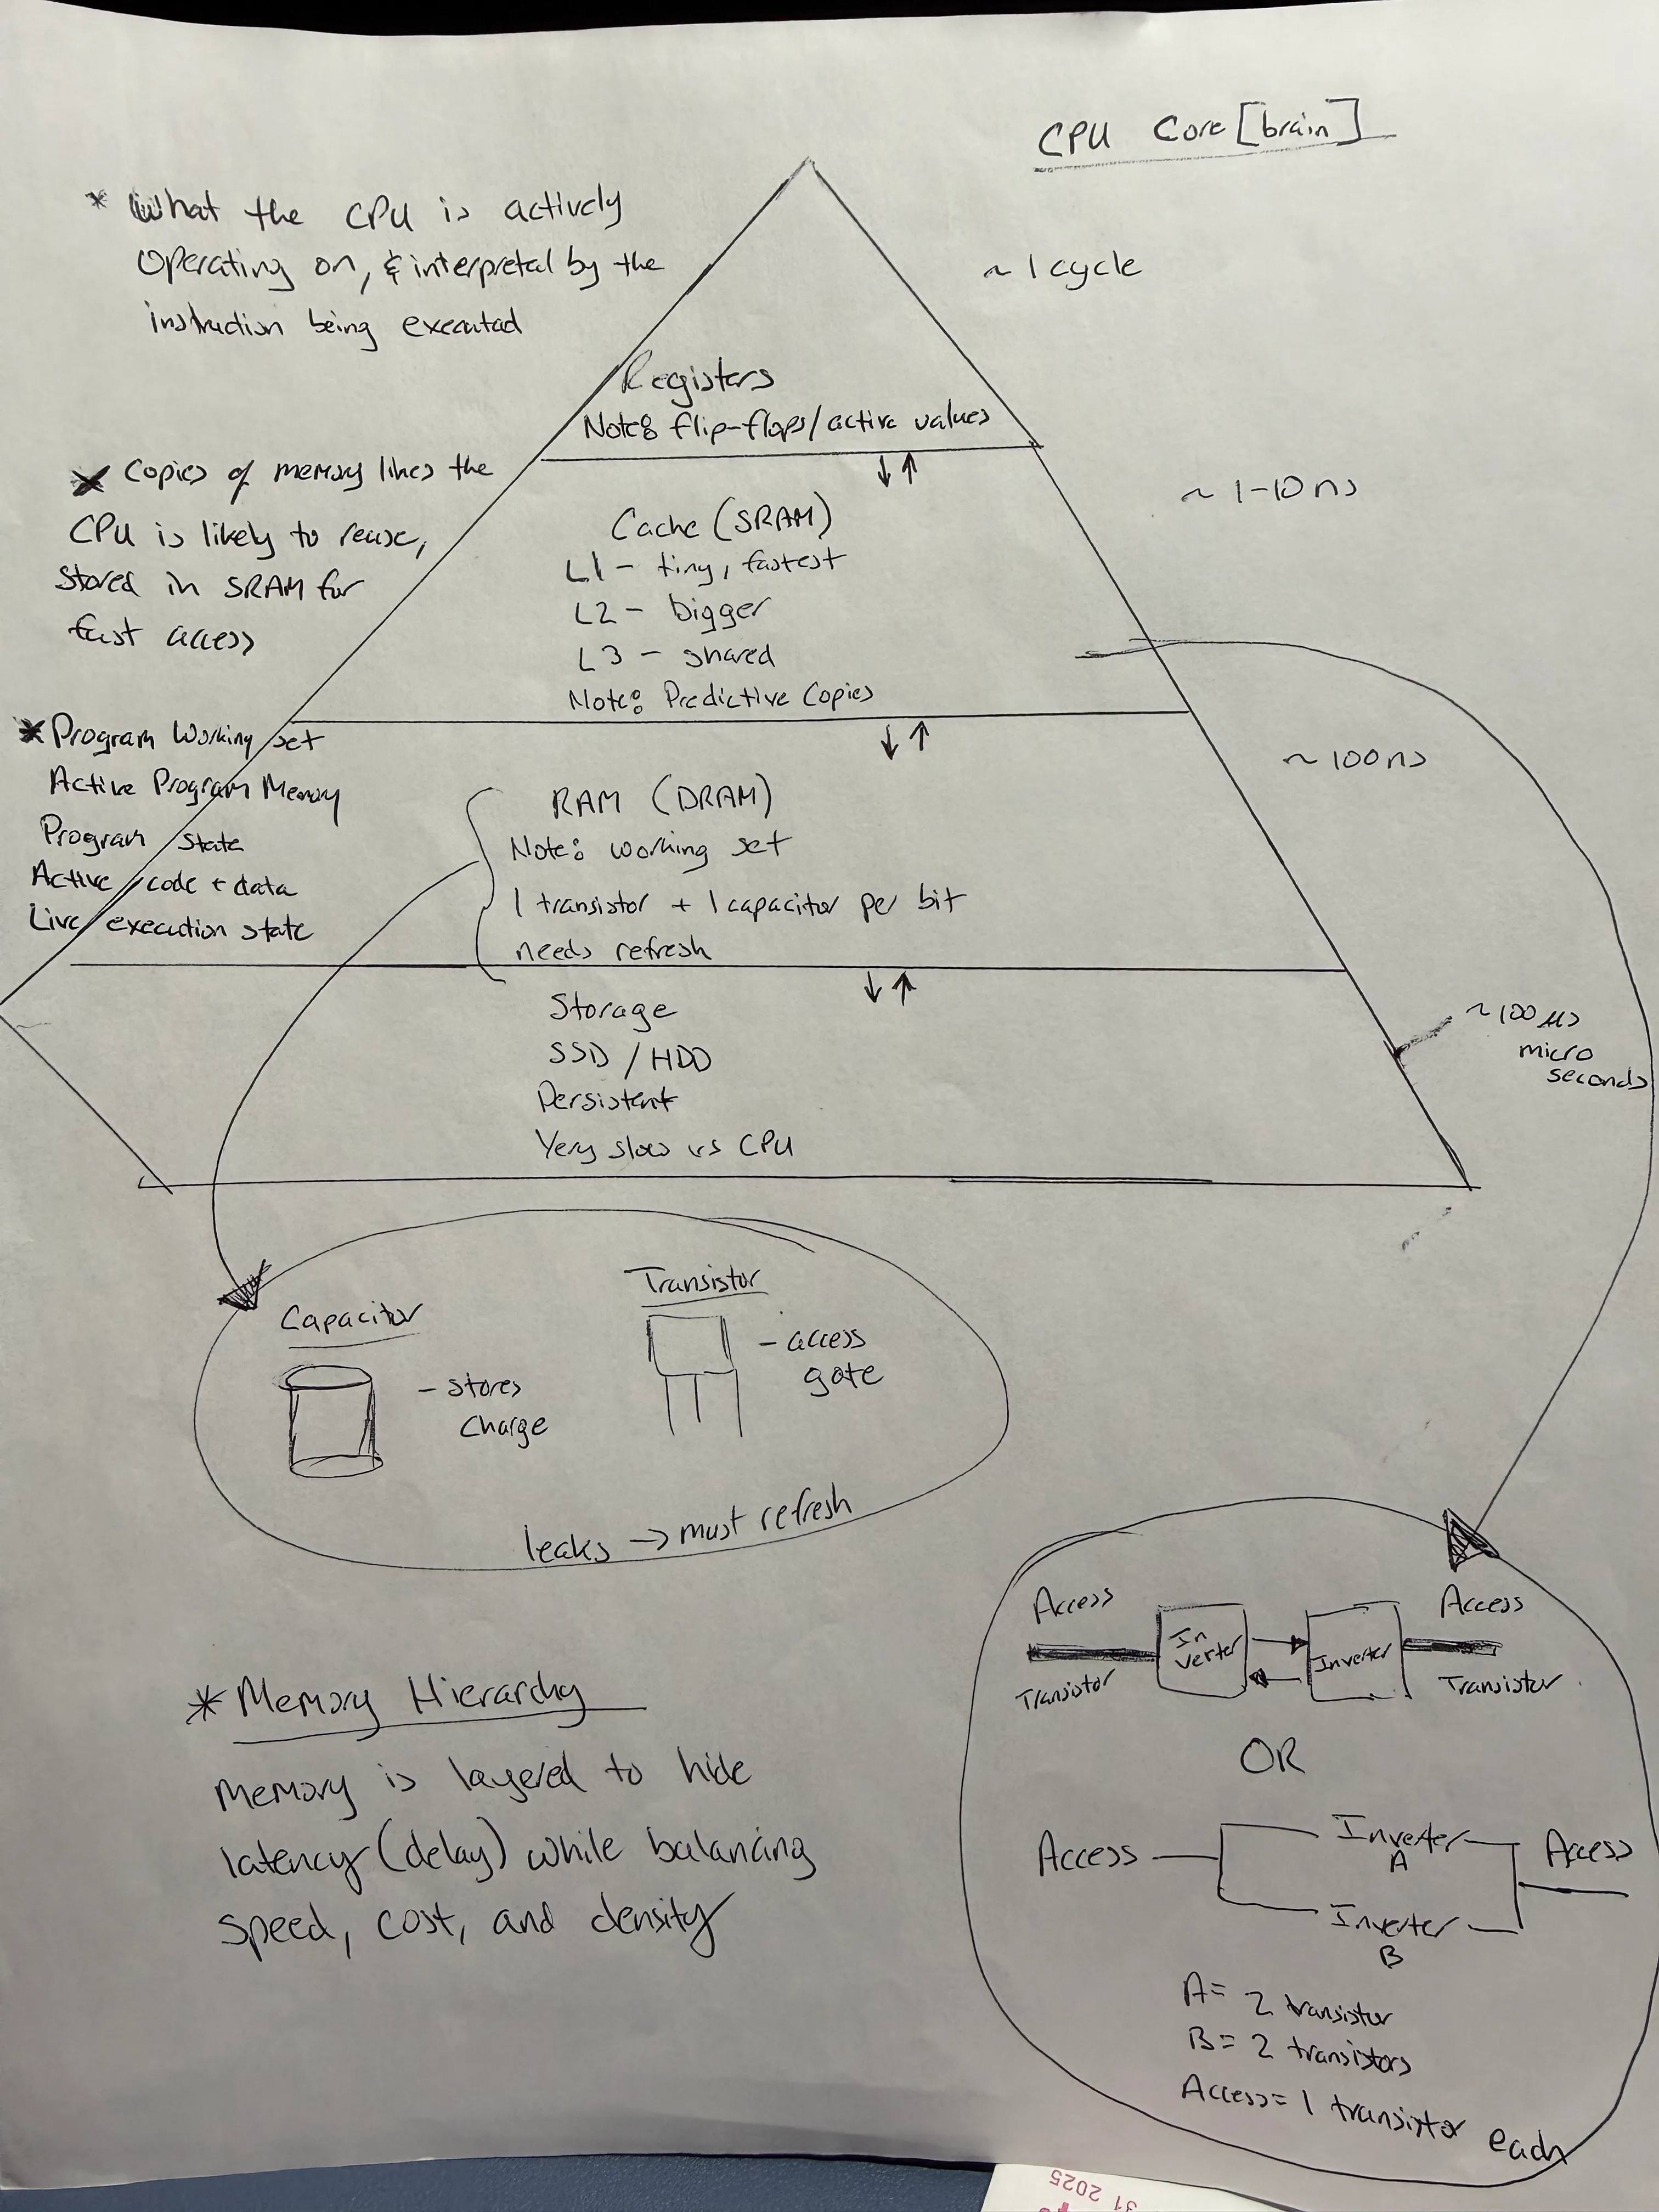 CPU Core [brain]
* What the CPU is actively
Operating on, & interpretal by the
instruction being executed
~ 1 cycle
Registers
Note: flip-flops/active values
↓ ↑
* Copies of memory lines the
CPU is likely to reuse,
Stored in SRAM for
fast access
~ 1-10 ns
Cache (SRAM)
L1 - tiny, fastest
L2 - bigger
L3 - shared
Note: Predictive Copies
↓ ↑
* Program Working set
Active Program Memory
Program State
Active code + data
Live execution state
~ 100 ns
RAM (DRAM)
Note: working set
1 transistor + 1 capacitor per bit
needs refresh
↓ ↑
Storage
SSD / HDD
Persistent
Very slow vs CPU
~ 100 µs
micro
seconds
Capacitor
- stores
charge
Transistor
- access
gate
leaks → must refresh
* Memory Hierarchy
Memory is layered to hide
latency (delay) while balancing
speed, cost, and density
Access
Transistor
In
verter
Inverter
Access
Transistor
OR
Access
Inverter
A
Inverter
B
Access
A= 2 transistor
B= 2 transistors
Access= 1 transistor each
31 2025